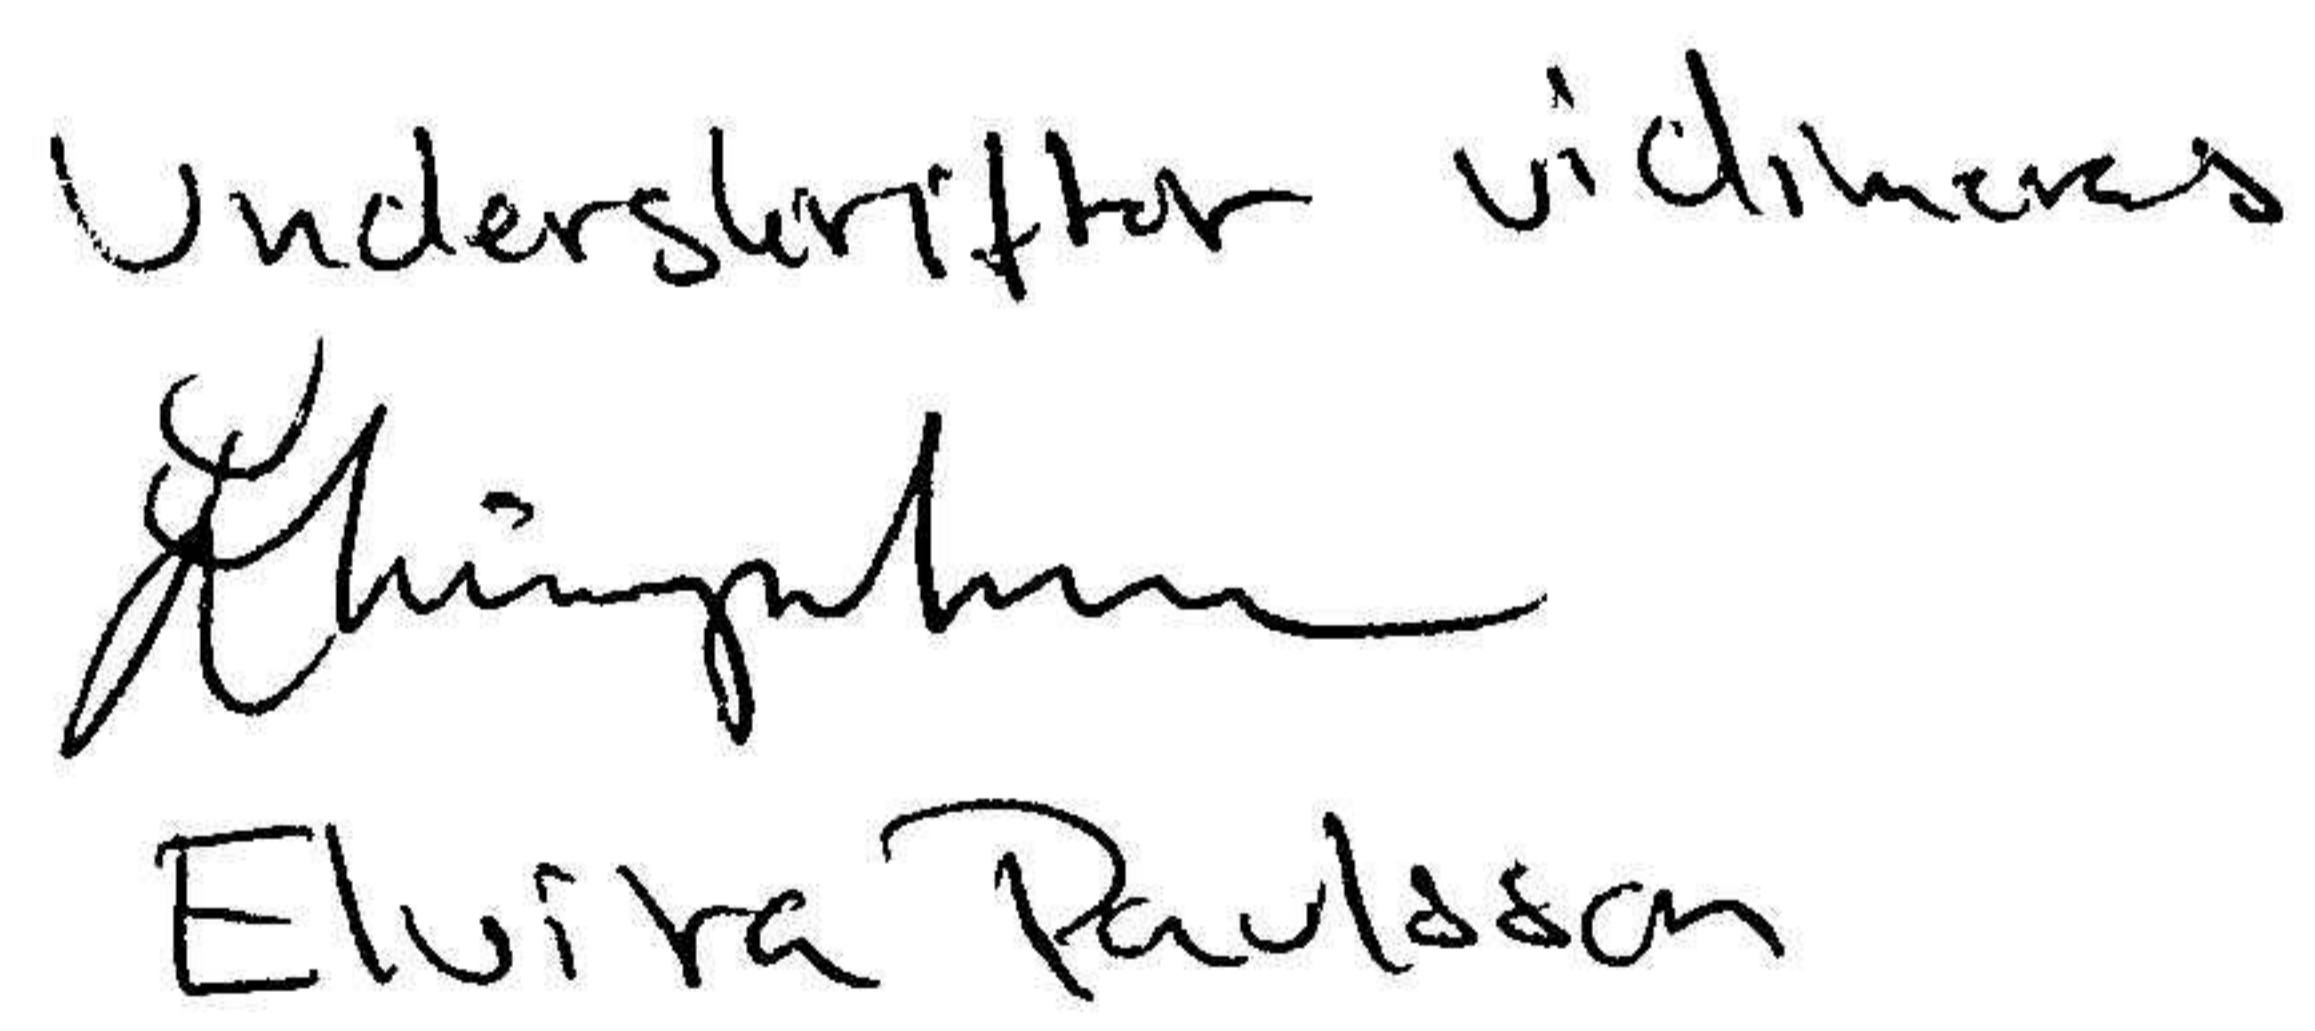 Underskriftor vidimeras
Elvira Paulsson